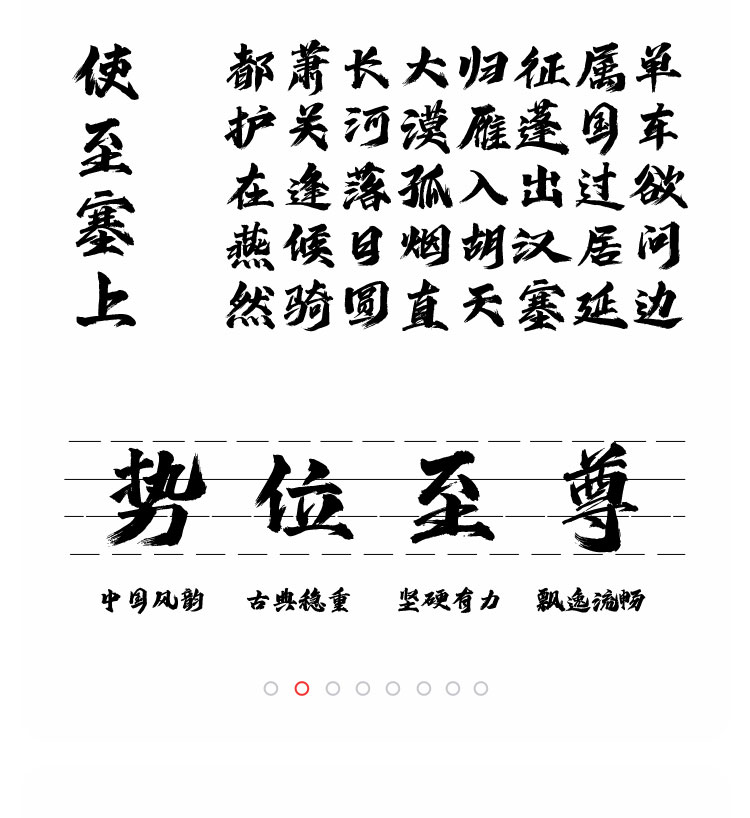 使至塞上
单车欲问边
属国过居延
征蓬出汉塞
归雁入胡天
大漠孤烟直
长河落日圆
萧关逢候骑
都护在燕然
势位至尊
中国风韵 古典稳重 坚硬有力 飘逸流畅